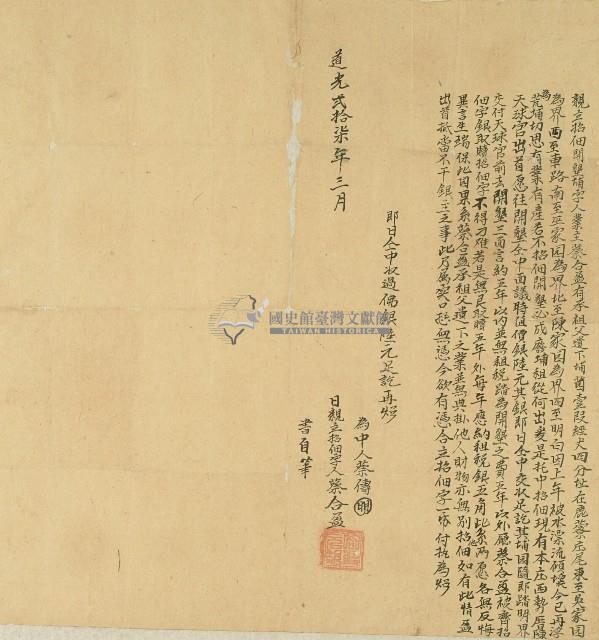 親立招佃開墾埔字人業主蔡合盈有承祖父遺下埔茵壹段經丈四分址在鹿藔庄尾東至吳家園
為界西至車路南至吳家園為界北至陳家園為界四至明白因上年被水漂流傾壞今已再浮
為荒埔切思有業有產若不招佃開墾必成廢埔租從何出爰是托中招佃現有本庄西勢厝陳
天球官出首愿往開墾仝中面議時值價銀陸元其銀即日仝中交收足訖其埔園隨即踏明界
交付天球官前去開墾三面言約五年以內並無租稅踏為開墾之費五年以外愿蔡合盈被齊招
佃字銀取贖招佃字不得刁难若是無民取贖五年外每年應納租稅銀五角此系兩愿各無反悔
異言生端保此園果系蔡合盈承祖父遺下之業並無典掛他人財物亦無別招佃如有此情盈
出首抵當不干銀主之事此乃萬实口恐無憑今欲有憑合立招佃字一紙付执為炤
即日仝中收過佛銀陸元足訖再炤
為中人蔡傳
日親立招佃字人蔡合盈
書自筆
道光弍拾柒年三月
國史館臺灣文獻館
TAIWAN HISTORICA